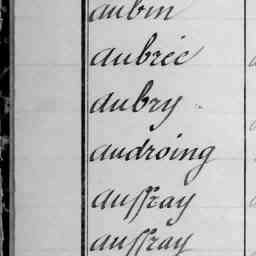 aubin
aubrée
aubry
audroing
auffray
auffray